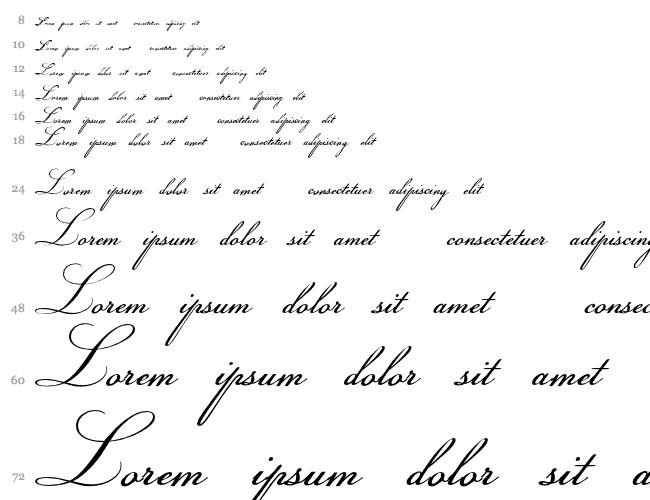 8 Lorem ipsum dolor sit amet consectetuer adipiscing elit
10 Lorem ipsum dolor sit amet consectetuer adipiscing elit
12 Lorem ipsum dolor sit amet consectetuer adipiscing elit
14 Lorem ipsum dolor sit amet consectetuer adipiscing elit
16 Lorem ipsum dolor sit amet consectetuer adipiscing elit
18 Lorem ipsum dolor sit amet consectetuer adipiscing elit
24 Lorem ipsum dolor sit amet consectetuer adipiscing elit
36 Lorem ipsum dolor sit amet consectetuer adipiscing
48 Lorem ipsum dolor sit amet consec
60 Lorem ipsum dolor sit amet
72 Lorem ipsum dolor sit a